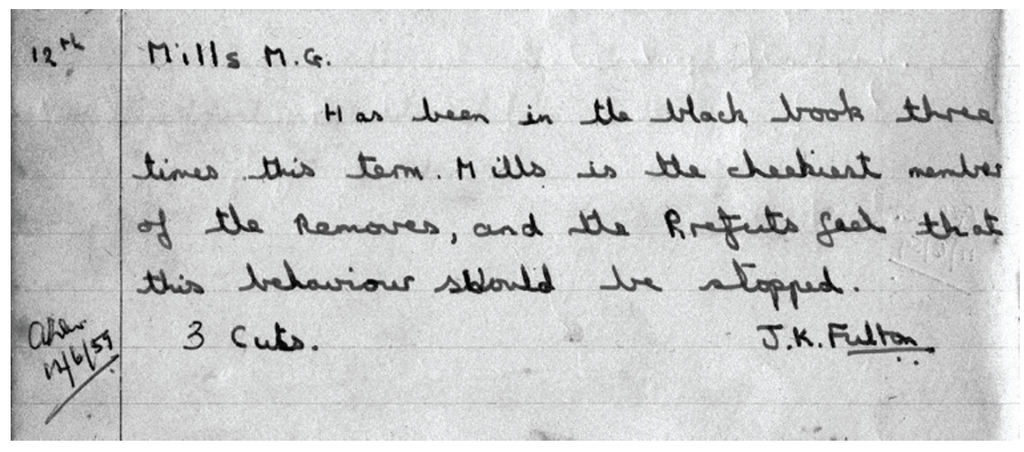 12th Mills M.G.
Has been in the black book three
times this term. Mills is the cheekiest member
of the Removes, and the Prefects feel that
this behaviour should be stopped.
3 Cuts. J.K. Fulton
12/6/59